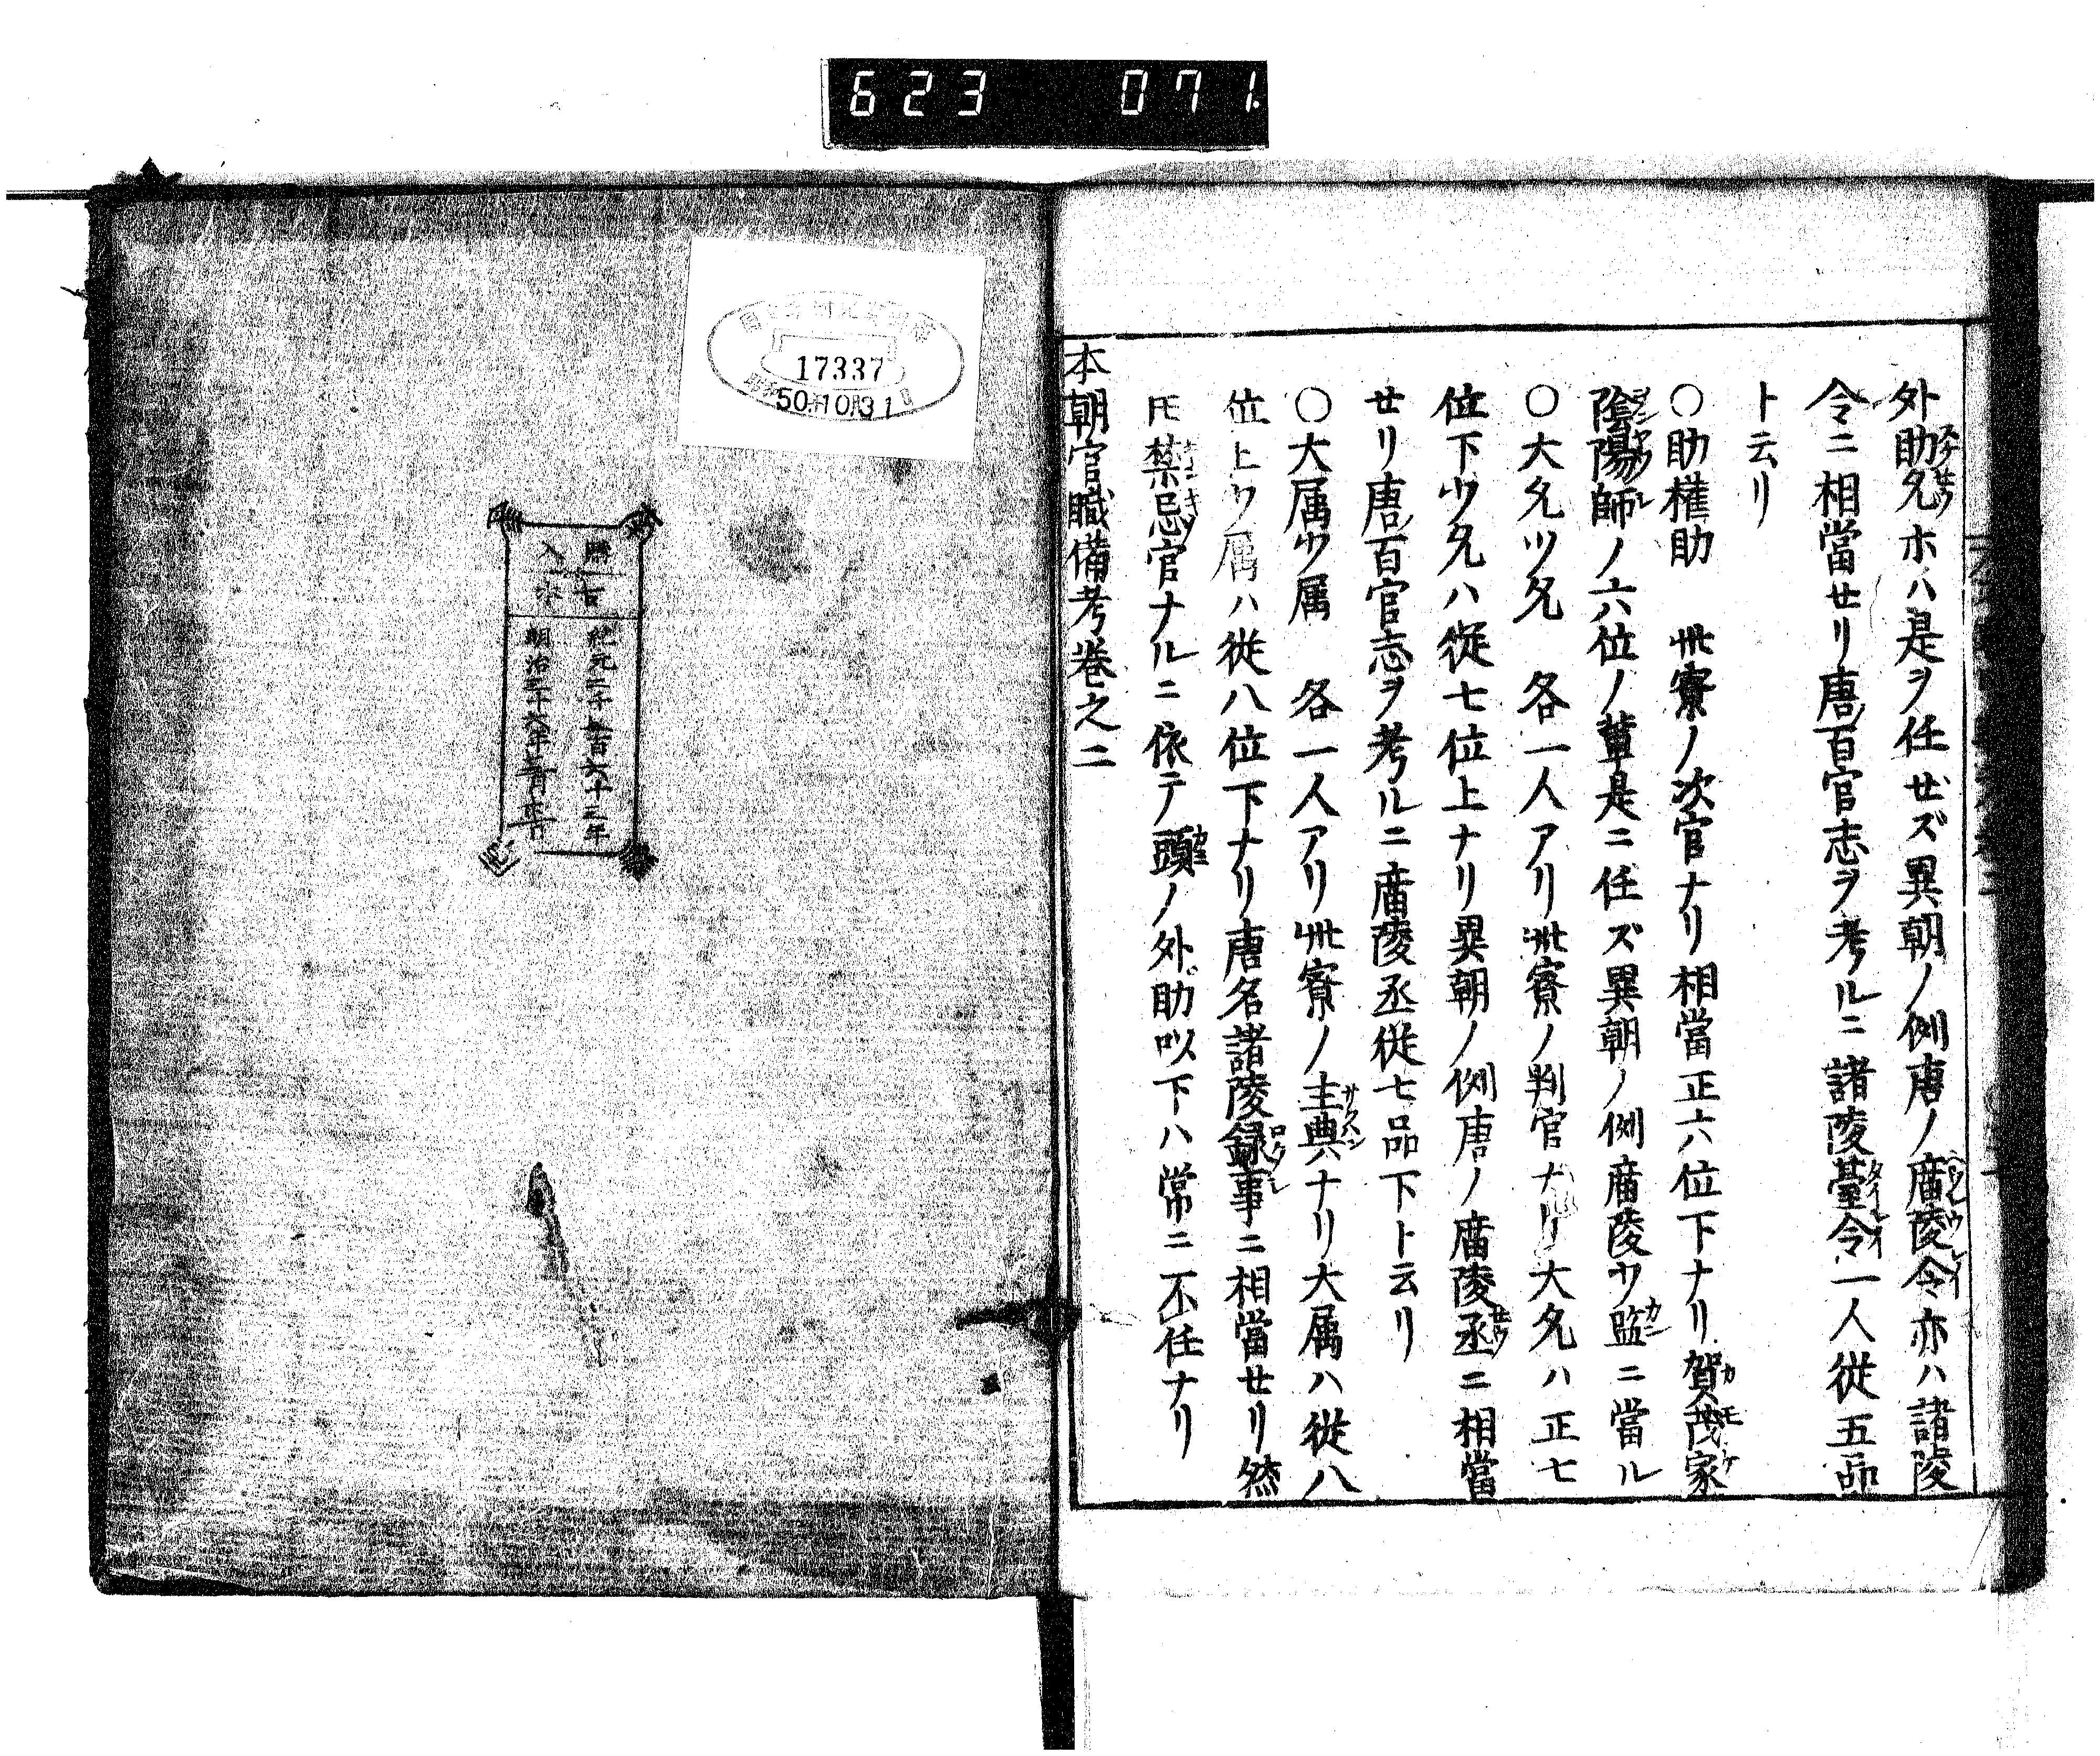 623 071
外助允ホハ是ヲ任ゼズ異朝ノ例唐ノ廣陵令亦ハ諸陵
令ニ相當セリ唐百官志ヲ考ルニ諸陵臺令一人従五品
ト云リ
〇助権助 此寮ノ次官ナリ相當正六位下ナリ賀茂家
陰陽師ノ六位ノ輩是ニ任ズ異朝ノ例廣陵少監ニ當ル
〇大允少允 各一人アリ此寮ノ判官ナリ大允ハ正七
位下少允ハ従七位上ナリ異朝ノ例唐ノ廣陵丞ニ相當
セリ唐百官志ヲ考ルニ廣陵丞従七品下ト云リ
〇大属少属 各一人アリ此寮ノ主典ナリ大属ハ従八
位上少属ハ従八位下ナリ唐名諸陵録事ニ相當セリ然
𪜈禁忌官ナルニ依テ頭ノ外助以下ハ常ニ不任ナリ
本朝官職備考巻之二
17337
50.10.31
紀元二千五百六十三年
明治三十六年